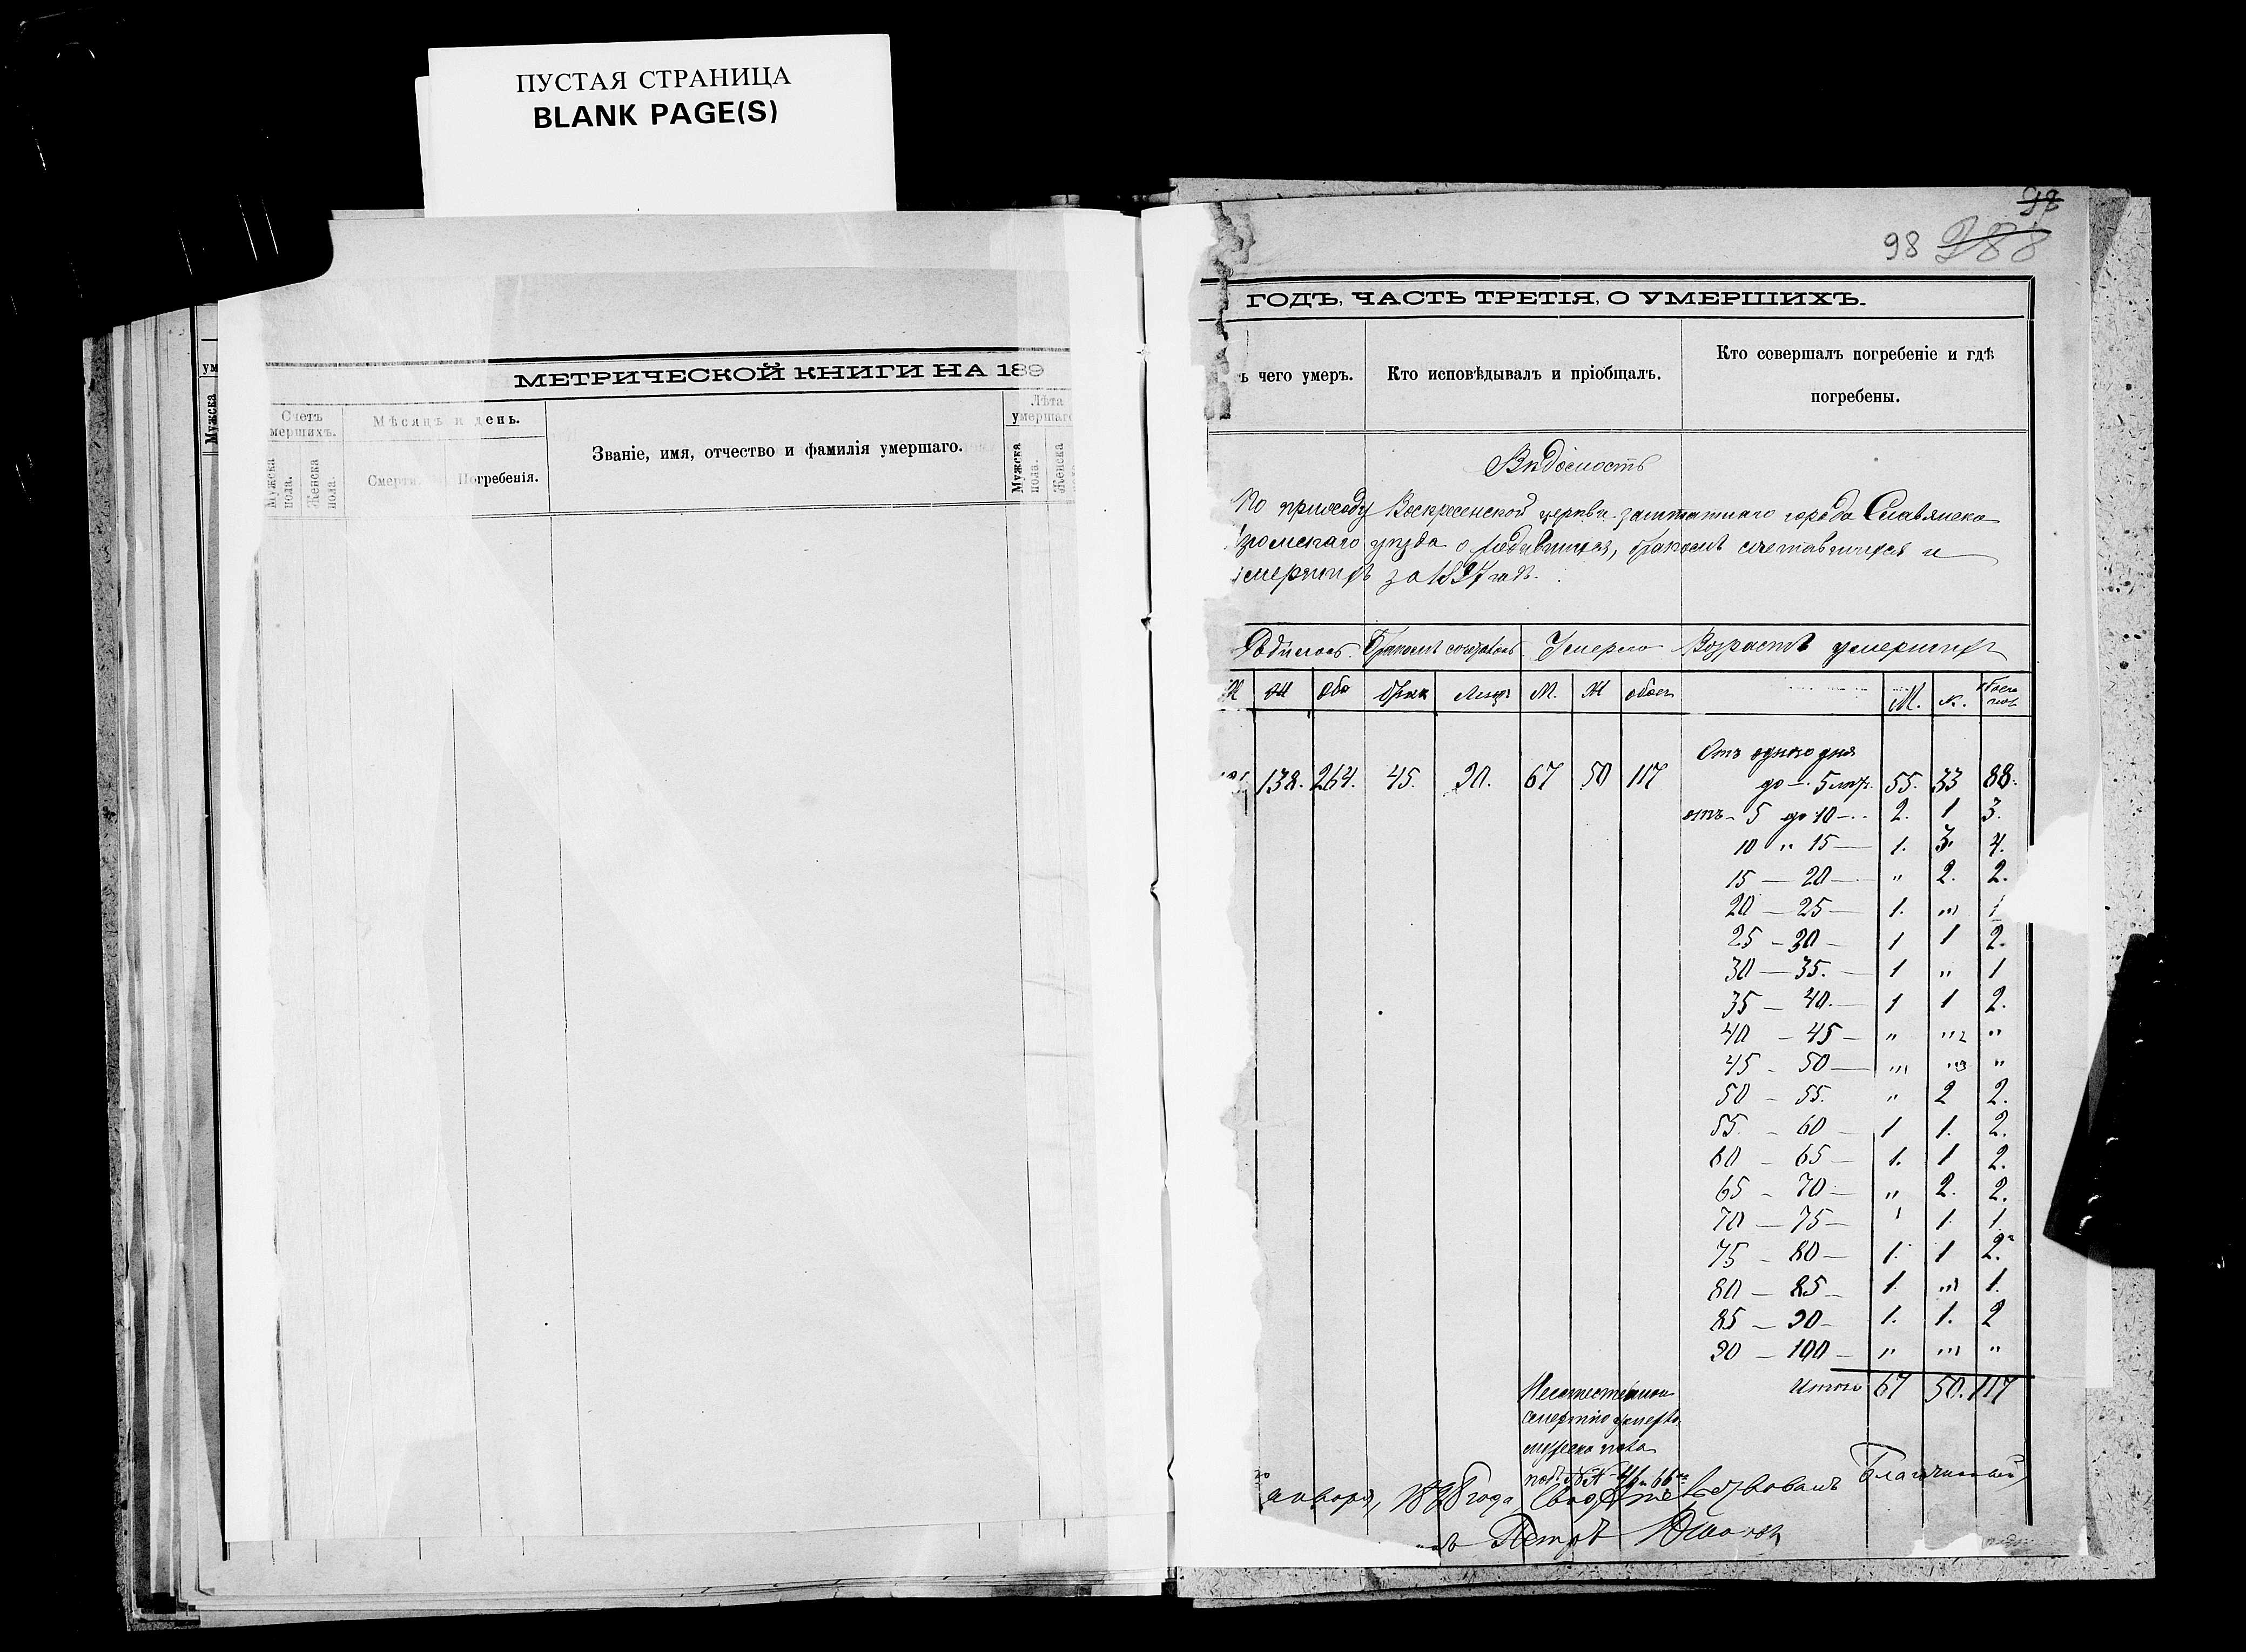 ПУСТАЯ СТРАНИЦА
BLANK PAGE(S)
98
98 288
МЕТРИЧЕСКОЙ КНИГИ НА 189
Счетъ мершихъ.
Мѣсяцъ и день.
Званіе, имя, отчество и фамилія умершаго.
Лѣта умершаго
Мужска пола.
Женска пола.
Смерти.
Погребенія.
Мужска пола.
Женска
ум
Мужска
ГОДЪ, ЧАСТЬ ТРЕТІЯ, О УМЕРШИХЪ.
ъ чего умеръ.
Кто исповѣдывалъ и пріобщалъ.
Кто совершалъ погребеніе и гдѣ
погребены.
Вѣдомость
По приходу Воскресенской церкви заштатнаго города Славянска
зюмскаго уѣзда о родившихся, бракомъ сочетавшихся и
умершихъ за 1897 годъ.
Родилось Бракомъ сочетавш. Умерло Возрастъ умершихъ
М Ж Обо брак Лицъ М. Ж обоего М. ж. обоего пол.
Отъ одного дня
138. 264. 45. 90. 67 50 117 до — 5 лѣтъ. 55. 33 88.
отъ — 5 до 10 — 2. 1 3.
10 „ 15 — 1. 3. 4.
15 — 20 — „ 2. 2.
20 — 25 — 1. „ 1
25 — 30 — 1 1 2.
30 — 35. — 1 „ 1
35 — 40. — 1 1 2.
40 — 45 — „ „ „
45 — 50 — „ „ „
50 — 55. „ 2 2.
55. — 60 — 1 1. 2.
60 — 65 — 1. 1 2.
65 — 70 — „ 2. 2.
70 — 75 — ' 1. 1.
75 — 80 — 1. 1 2.
80 — 85 — 1. „ 1.
85 — 90 — 1. 1. 2
90 — 100 — „ „ „
Итого 67 50. 117
Неестественною
смертію умерло
мужска пола
под № № 46 и 66
января, 1898 года, Свидѣтельствовалъ Благочинный
Петръ